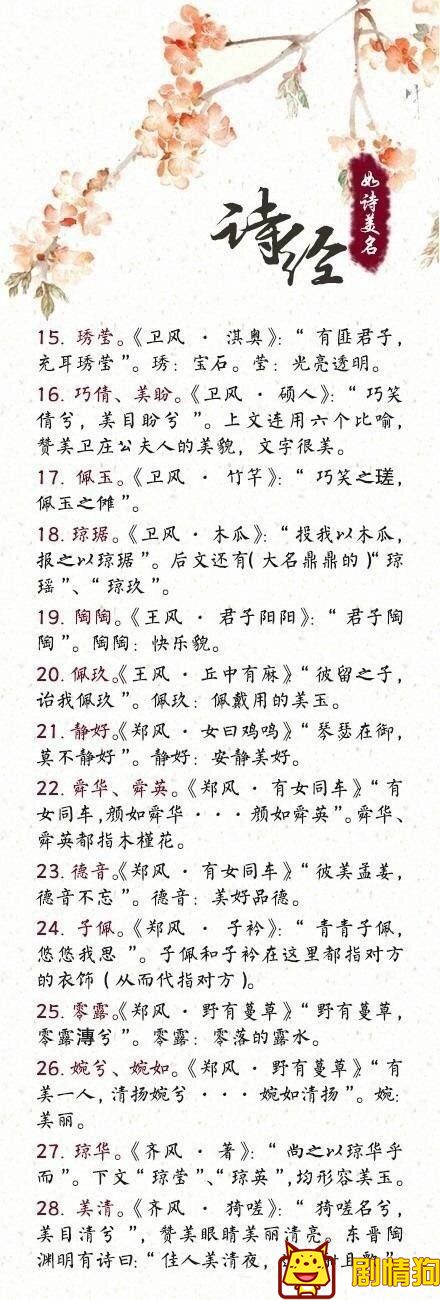 诗经
如诗美名
15. 琇莹。《卫风 · 淇奥》：“ 有匪君子，
充耳琇莹 ”。琇：宝石。莹：光亮透明。
16. 巧倩、美盼。《卫风 · 硕人》：“ 巧笑
倩兮，美目盼兮 ”。上文连用六个比喻，
赞美卫庄公夫人的美貌，文字很美。
17. 佩玉。《卫风 · 竹竿》：“ 巧笑之瑳，
佩玉之傩 ”。
18. 琼琚。《卫风 · 木瓜》：“ 投我以木瓜，
报之以琼琚 ”。后文还有( 大名鼎鼎的 )“ 琼
瑶 ”、“ 琼玖 ”。
19. 陶陶。《王风 · 君子阳阳》：“ 君子陶
陶 ”。陶陶：快乐貌。
20. 佩玖。《王风 · 丘中有麻》“ 彼留之子，
诒我佩玖 ”。佩玖：佩戴用的美玉。
21. 静好。《郑风 · 女曰鸡鸣》“ 琴瑟在御，
莫不静好 ”。静好：安静美好。
22. 舜华、舜英。《郑风 · 有女同车》“ 有
女同车，颜如舜华 · · · 颜如舜英 ”。舜华、
舜英都指木槿花。
23. 德音。《郑风 · 有女同车》“ 彼美孟姜，
德音不忘 ”。德音：美好品德。
24. 子佩。《郑风 · 子衿》：“ 青青子佩，
悠悠我思 ”。子佩和子衿在这里都指对方
的衣饰（ 从而代指对方 ）。
25. 零露。《郑风 · 野有蔓草》“ 野有蔓草，
零露漙兮 ”。零露：零落的露水。
26. 婉兮、婉如。《郑风 · 野有蔓草》“ 有
美一人，清扬婉兮 · · · 婉如清扬 ”。婉：
美丽。
27. 琼华。《齐风 · 著》：“ 尚之以琼华乎
而 ”。下文“ 琼莹 ”、“ 琼英 ”，均形容美玉。
28. 美清。《齐风 · 猗嗟》：“ 猗嗟名兮，
美目清兮 ”，赞美眼睛美丽清亮。东晋陶
渊明有诗曰：“ 佳人美清夜，
剧情狗